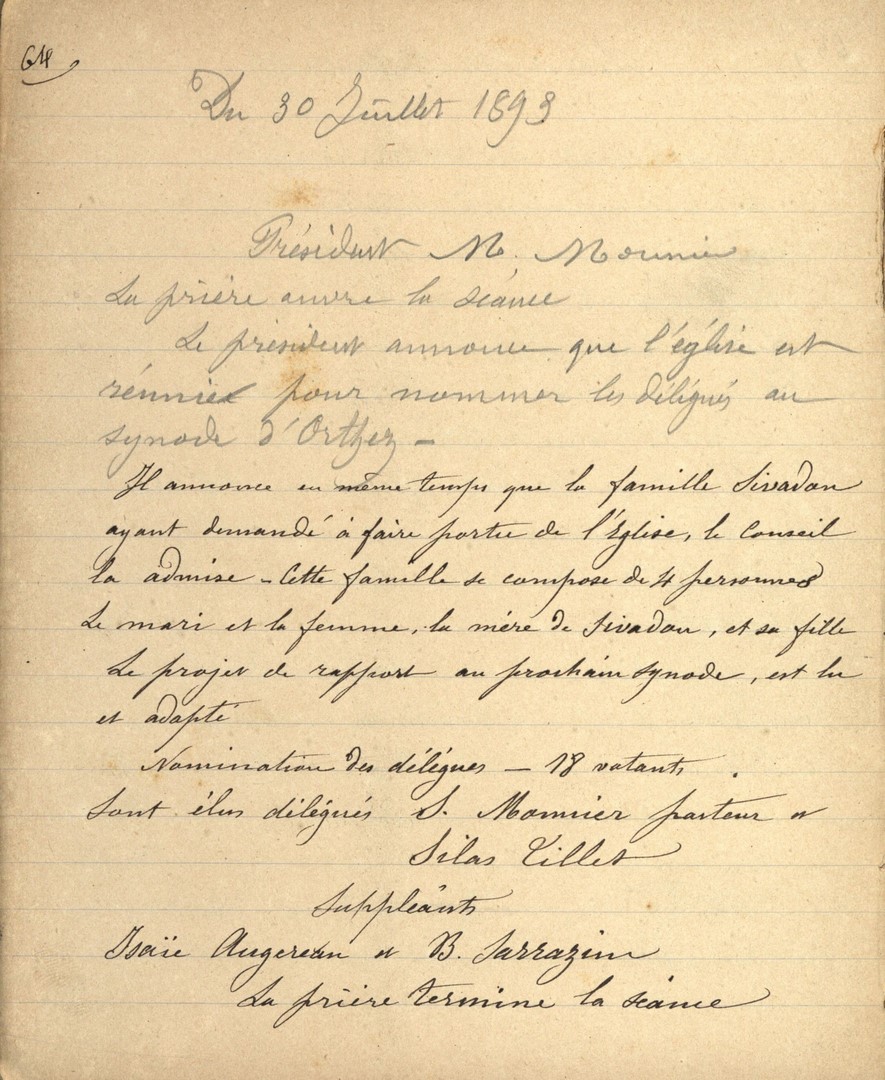 64
Du 30 Juillet 1893
Président M. Mounier
La prière ouvre la séance
Le président annonce que l'église est
réunie pour nommer les délégués au
synode d'Orthez -
Il annonce en même temps que la famille Sivadon
ayant demandé à faire partie de l'Eglise, le Conseil
la admise - Cette famille se compose de 4 personnes
Le mari et la femme, la mère de Sivadon, et sa fille
Le projet de rapport au prochain synode, est lu
et adopté
Nomination des délégues - 18 votants.
Sont élus délégués S. Monnier pasteur et
Silas Tillet
Suppléants
Isaïe Augereau et B. Sarrazin
La prière termine la séance